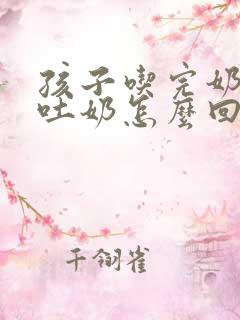 孩子喫完奶
吐奶怎麽回
千翎雀